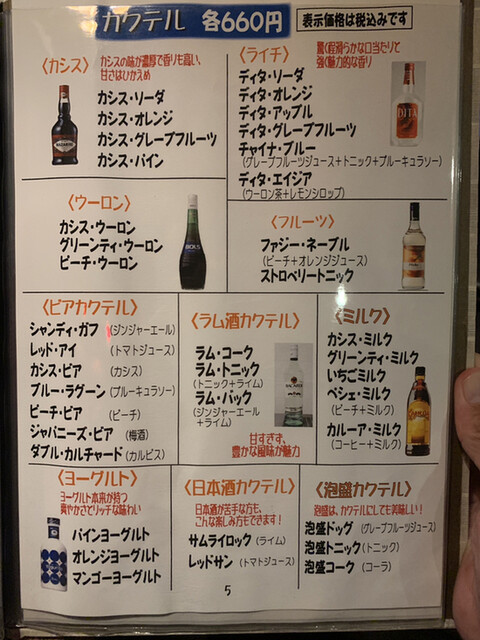 カクテル 各660円
表示価格は税込みです
〈カシス〉
カシスの味が濃厚で香りも高い、
甘さはひかえめ
カシス・ソーダ
カシス・オレンジ
カシス・グレープフルーツ
カシス・パイン
〈ライチ〉
驚く程滑らかな口当たりと
強く魅力的な香り
ディタ・ソーダ
ディタ・オレンジ
ディタ・アップル
ディタ・グレープフルーツ
チャイナ・ブルー
(グレープフルーツジュース+トニック+ブルーキュラソー)
ディタ・エイジア
(ウーロン茶+レモンシロップ)
DITA
〈ウーロン〉
カシス・ウーロン
グリーンティ・ウーロン
ピーチ・ウーロン
BOLS
〈フルーツ〉
ファジー・ネーブル
(ピーチ+オレンジジュース)
ストロベリートニック
〈ビアカクテル〉
シャンディ・ガフ (ジンジャーエール)
レッド・アイ (トマトジュース)
カシス・ビア (カシス)
ブルー・ラグーン (ブルーキュラソー)
ピーチ・ビア (ピーチ)
ジャパニーズ・ビア (梅酒)
ダブル・カルチャード (カルピス)
〈ラム酒カクテル〉
ラム・コーク
ラム・トニック
(トニック+ライム)
ラム・バック
(ジンジャーエール
+ライム)
甘すぎず、
豊かな風味が魅力
〈ミルク〉
カシス・ミルク
グリーンティ・ミルク
いちごミルク
ペシェ・ミルク
(ピーチ+ミルク)
カルーア・ミルク
(コーヒー+ミルク)
〈ヨーグルト〉
ヨーグルト本来が持つ
爽やかさでリッチな味わい
パインヨーグルト
オレンジヨーグルト
マンゴーヨーグルト
〈日本酒カクテル〉
日本酒が苦手な方も、
こんな楽しみ方もできます!
サムライロック (ライム)
レッドサン (トマトジュース)
〈泡盛カクテル〉
泡盛は、カクテルにしても美味しい!
泡盛ドッグ (グレープフルーツジュース)
泡盛トニック (トニック)
泡盛コーク (コーラ)
5